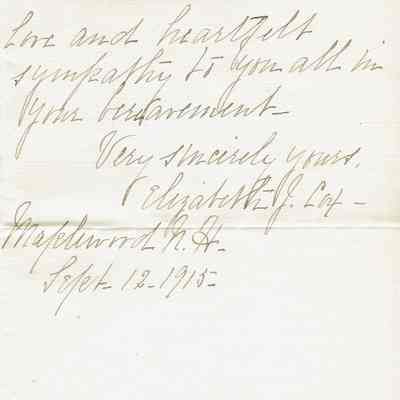 Love and heartfelt
sympathy to you all in
your bereavement-
Very sincerely yours,
Elizabeth J. Cox -
Maplewood N. H-
Sept- 12-1915-